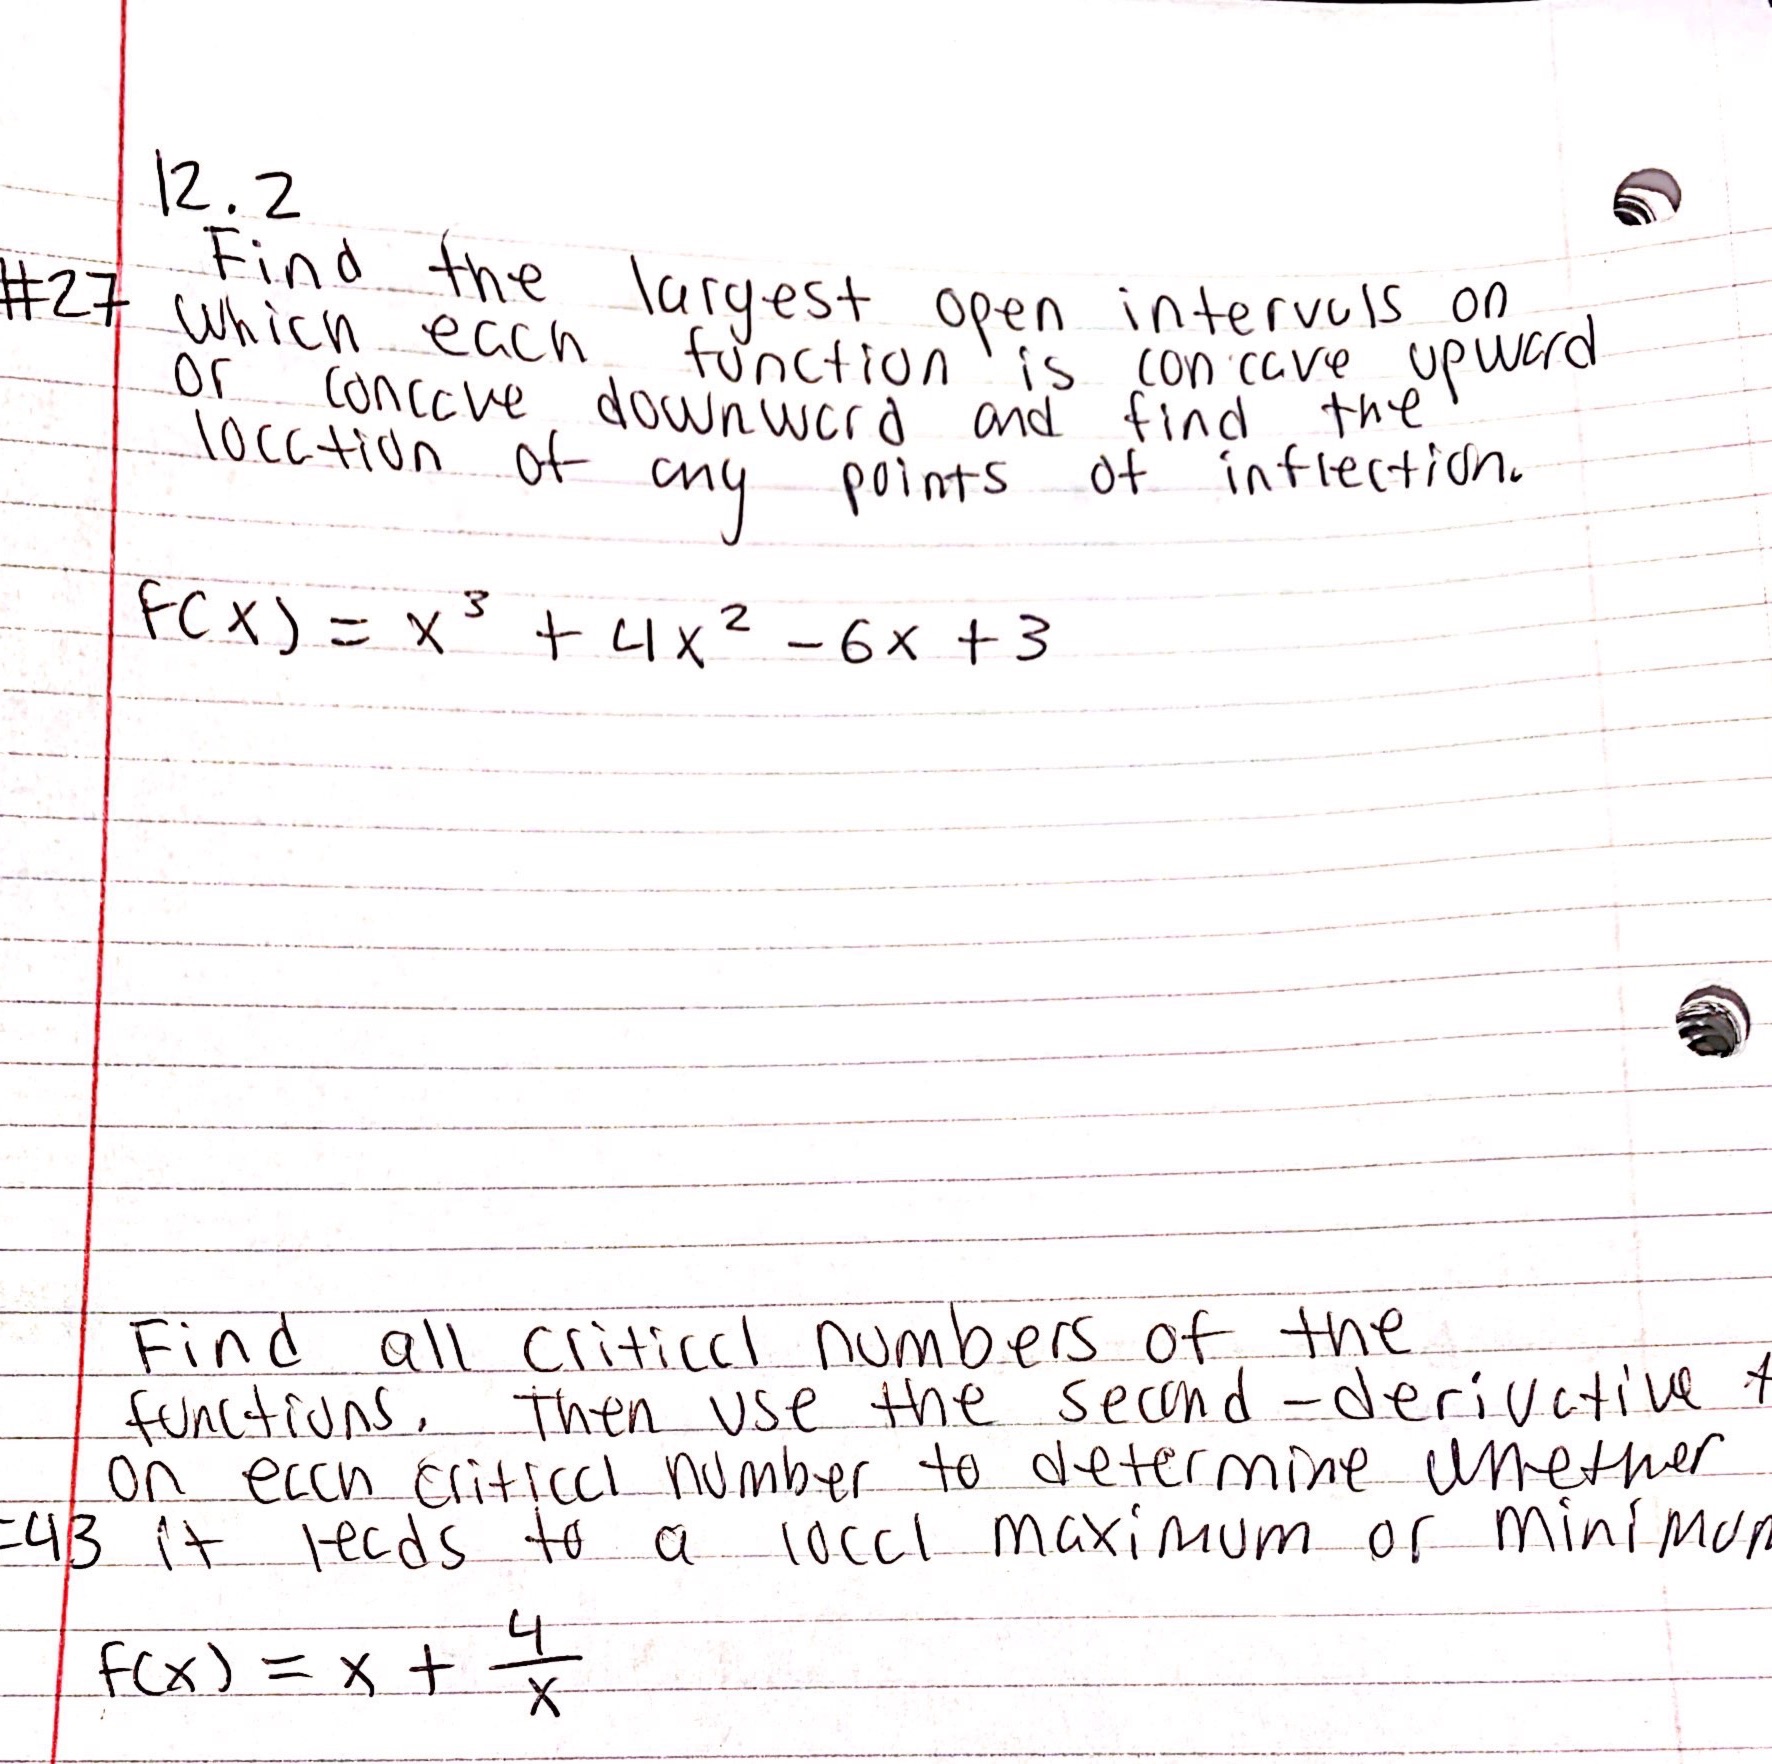 12.2
Find the largest open intervals on
#27 which each function is concave upward
or concave downward and find the
location of any points of inflection.
F(x) = x³ + 4x² - 6x + 3
Find all critical numbers of the
functions. Then use the second-derivative t
on each critical number to determine whether
43 it leads to a local maximum or minimum
f(x) = x + 4/x